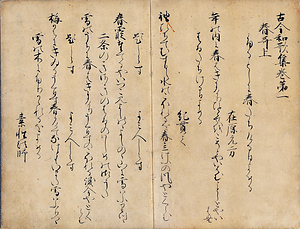 古今和歌集巻第一
春哥上
ふるとしに春たちける日よめる
在原元方
年の内に春はきにけりひとゝせをこそとやいはむことしとや
いはむ
春たちける日よめる
紀貫之
袖ひちてむすひし水のこほれるを春立けふの風やとくらむ
題しらす よみ人しらす
春霞たてるやいつこみよしのゝよしのゝ山に雪はふりつゝ
二条のきさきの春のはしめの御うた
雪の内に春はきにけり鶯のこほれる涙今やとくらむ
題しらす よみ人しらす
梅かえにきゐるうくひす春かけてなけともいまた雪はふりつゝ
雪の木にふりかゝれるをよめる
素性法師